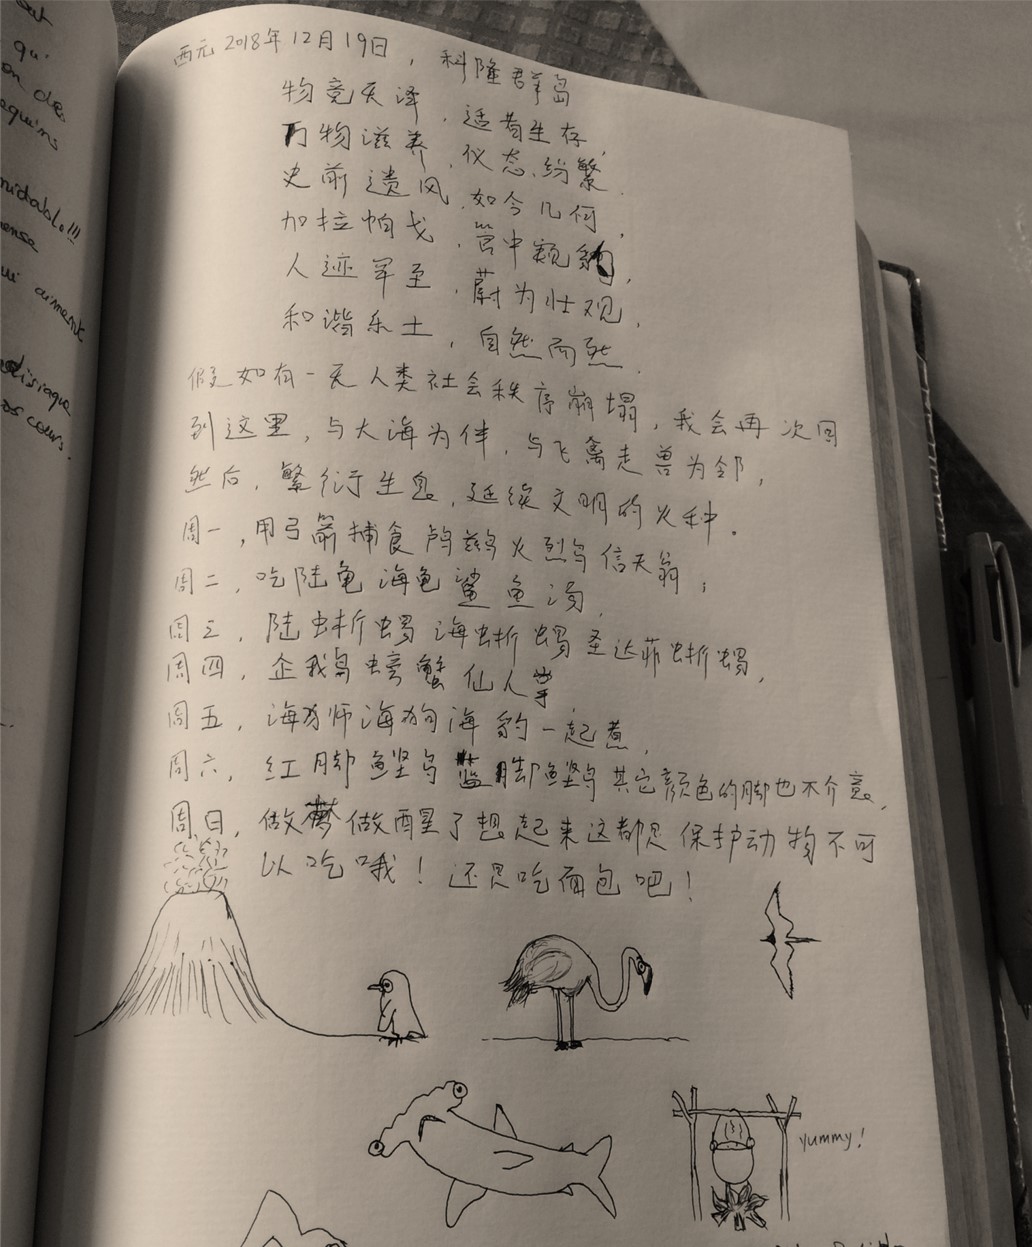 out
qu'
on de
equins
midable!!!
ense
ui aiment
disiaque
os cœurs.
西元2018年12月19日，科隆群岛
物竞天泽，适者生存，
万物滋养，仪态纷繁．
史前遗风，如今几何，
加拉帕戈，管中窥豹，
人迹罕至，蔚为壮观，
和谐乐土，自然而然．
假如有一天人类社会秩序崩塌，我会再次回
到这里，与大海为伴，与飞禽走兽为邻，
然后，繁衍生息，延续文明的火种．
周一，用弓箭捕食鸬鹚鸟火烈鸟信天翁；
周二，吃陆龟海龟鲨鱼汤，
周三，陆蜥蜴海蜥蜴圣达菲蜥蜴，
周四，企鹅鸟螃蟹仙人掌，
周五，海狮海狗海豹一起煮，
周六，红脚鲣鸟蓝脚鲣鸟其它颜色的脚也不介意，
周日，做梦做醒了想起来这都是保护动物不可
以吃哦！还是吃面包吧！
yummy!